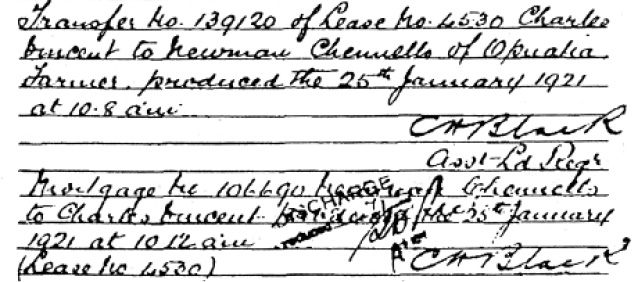 Transfer No. 139120 of Lease No. 4530 Charles
Vincent to Newman Chennells of Opuatia
Farmer, produced the 25th January 1921
at 10.8 am
C H Black
Asst Ld Regr
Mortgage No 106690 Newman Chennells
to Charles Vincent produced the 25th January
1921 at 10.12 am
(Lease No 4530)
C H Black
DISCHARGE